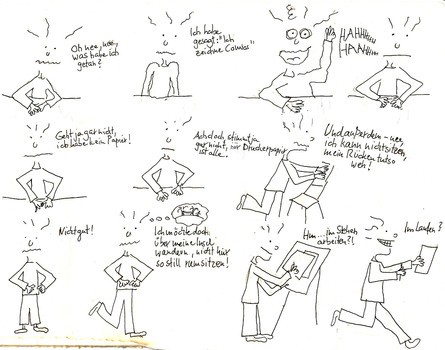 Oh nee, nee,
was habe ich
getan?
Ich habe
gesagt: "Ich
zeichne Comics"
HAHHHHH
HAHHH
Geht ja gar nicht,
ich habe kein Papier!
Ach doch, stimmt ja
gar nicht, nur Druckerpapier
ist alle...
Und außerdem - nee,
ich kann nicht sitzen,
mein Rücken tut so
weh!
Nicht gut!
Ich möchte doch
über meine Insel
wandern, nicht hier
so still rumsitzen!
Hm... im Stehen
arbeiten?!
Im Laufen?